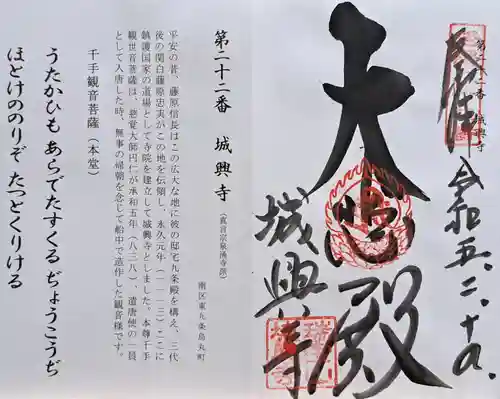 第二十二番 城興寺
奉拝
令和五、二、十九、
大悲殿
城興寺
第二十二番 城興寺(真言宗泉涌寺派)
南区東九条烏丸町
平安の昔、藤原信長はこの広大な地に彼の邸宅九条殿を構え、三代
後の関白藤原忠実がこの地を伝領し、永久元年(一一一三)ここに
鎮護国家の道場として寺院を建立して城興寺としました。本尊千手
観世音菩薩は、慈覚大師円仁が承和五年(八三八)、遣唐使の一員
として入唐した時、無事の帰朝を念じて船中で造作した観音様です。
千手観音菩薩(本堂)
うたかひも あらでたすくる ぢょうこうぢ
ほとけののりぞ たつとくりける